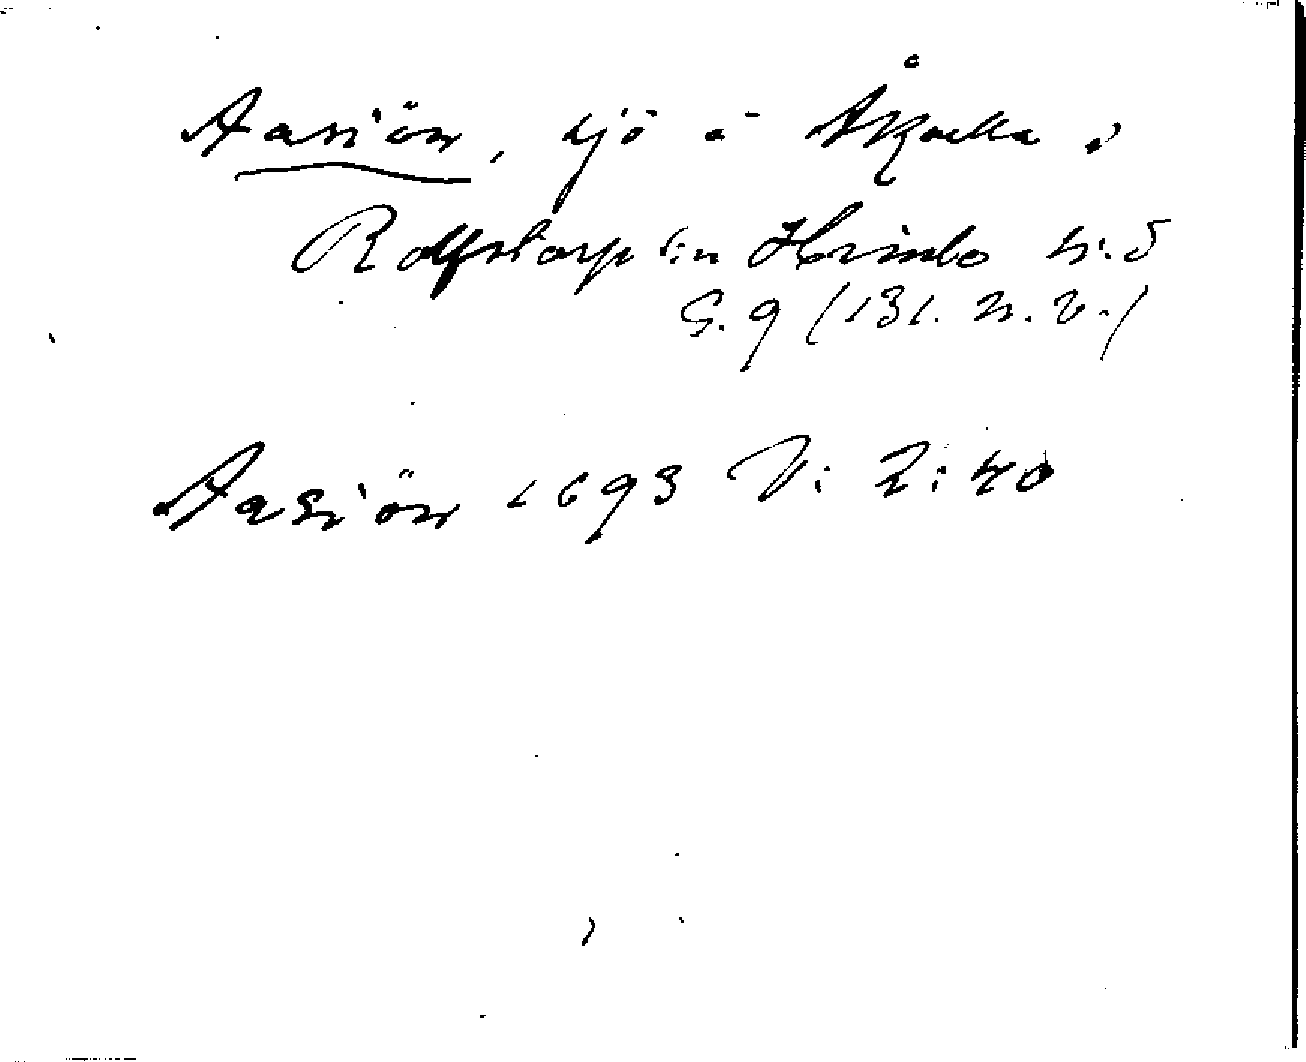 Aasiön, sjö å Skälla i
Rolfstorp sn Himle hd
S. 9 (131. n. v.)
Aasiön 1693 V: 2: 40